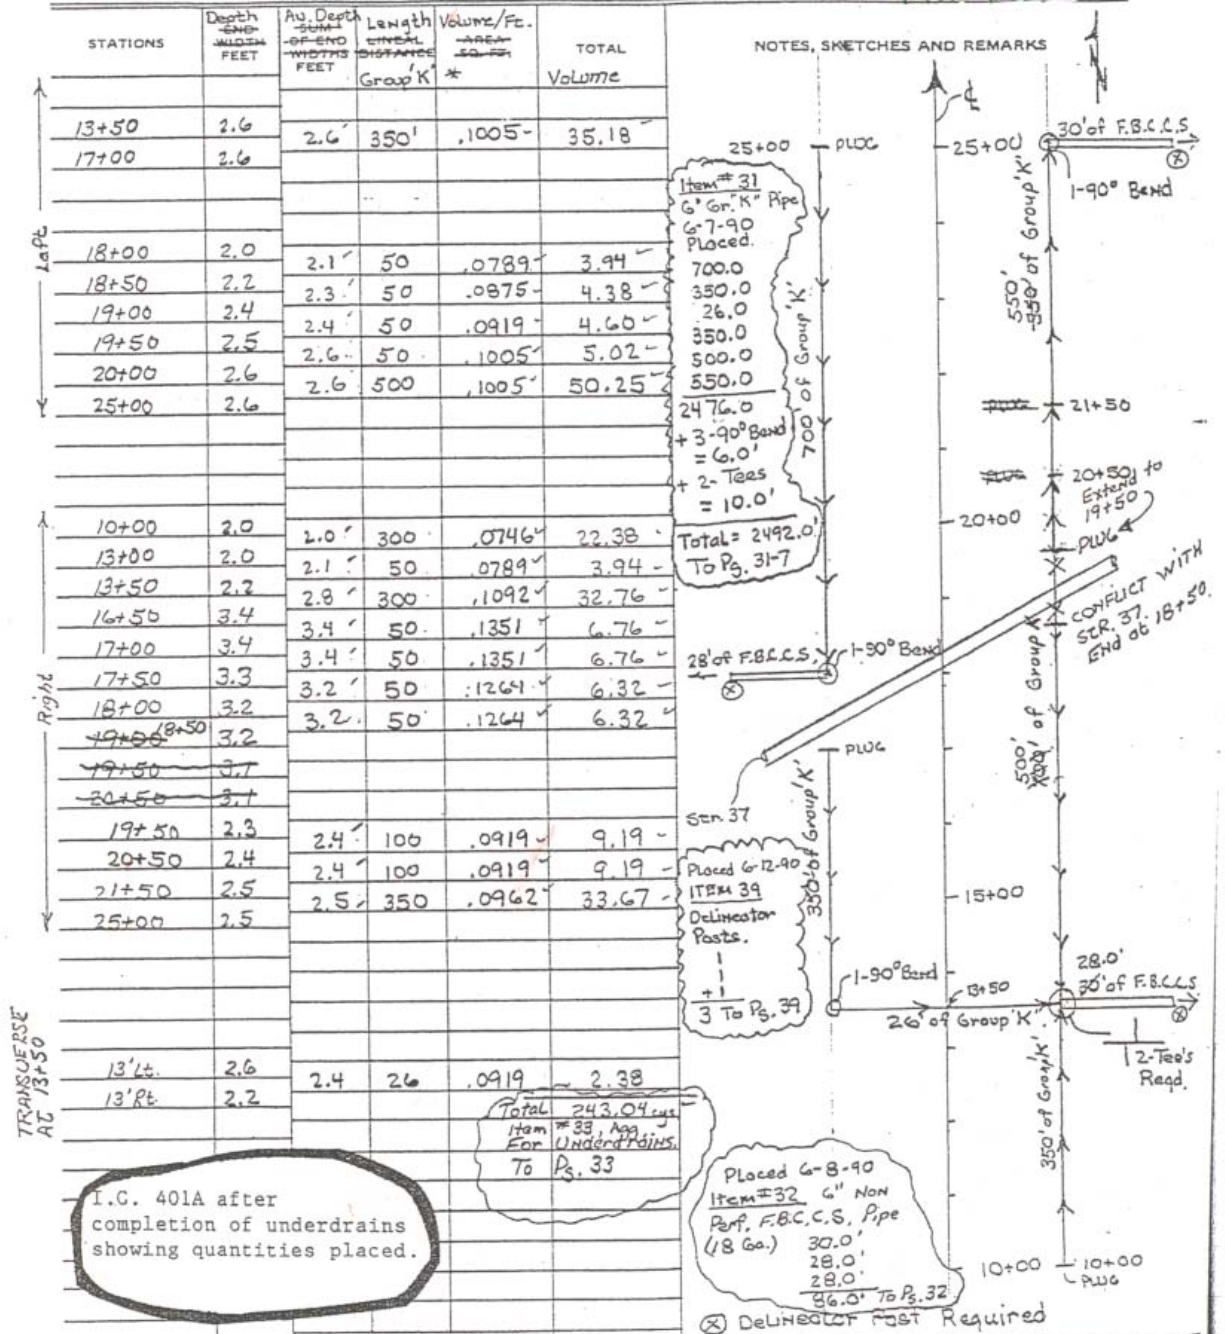 STATIONS
Depth
END
WIDTH
FEET
Av. Depth
SUM
OF END
WIDTHS
FEET
Length
LINEAL
DISTANCE
Group 'K'
Volume/Ft.
AREA
SQ. FT.
*
TOTAL
Volume
NOTES, SKETCHES AND REMARKS
Left
13+50 2.6
2.6' 350' .1005 35.18
17+00 2.6
18+00 2.0
2.1' 50 .0789 3.94
18+50 2.2
2.3 50 .0875 4.38
19+00 2.4
2.4 50 .0919 4.60
19+50 2.5
2.6 50 .1005 5.02
20+00 2.6
2.6 500 .1005 50.25
25+00 2.6
Right
10+00 2.0
2.0 300 .0746 22.38
13+00 2.0
2.1 50 .0789 3.94
13+50 2.2
2.8 300 .1092 32.76
16+50 3.4
3.4 50 .1351 6.76
17+00 3.4
3.4 50 .1351 6.76
17+50 3.3
3.2 50 .1264 6.32
18+00 3.2
3.2 50 .1264 6.32
19+00 18+50 3.2
19+50 3.1
20+50 3.1
19+50 2.3
2.4 100 .0919 9.19
20+50 2.4
2.4 100 .0919 9.19
21+50 2.5
2.5 350 .0962 33.67
25+00 2.5
TRANSVERSE
AT 13+50
13' Lt. 2.6
2.4 26 .0919 2.38
13' Rt. 2.2
Total 243.04 cys
Item #33, Agg
For Underdrains.
To Pg. 33
I.C. 401A after
completion of underdrains
showing quantities placed.
N
℄
25+00 PLUG
25+00
30' of F.B.C.C.S.
1-90° Bend
Item #31
6" Gr. "K" Pipe
6-7-90
Placed.
700.0
350.0
26.0
350.0
500.0
550.0
2476.0
+ 3-90° Bend
= 6.0'
+ 2- Tees
= 10.0'
Total = 2492.0'
To Pg. 31-7
700' of Group 'K'
550'
350' of Group 'K'
PLUG 21+50
PLUG 20+50
Extend to
19+50
20+00
PLUG
CONFLICT WITH
STR. 37.
End at 18+50.
28' of F.B.C.C.S.
1-90° Bend
500'
of Group 'K'
PLUG
Str. 37
350' of Group 'K'
Placed 6-12-90
ITEM 39
Delineator
Posts.
1
1
+1
3 To Pg. 39
15+00
1-90° Bend
13+50
26' of Group "K"
28.0'
30' of F.B.C.C.S
2-Tee's
Reqd.
350' of Group 'K'
Placed 6-8-90
Item #32 6" Non
Perf. F.B.C.C.S. Pipe
(18 Ga.) 30.0'
28.0'
28.0'
86.0' To Pg. 32
10+00
10+00
PLUG
⊗ Delineator Post Required